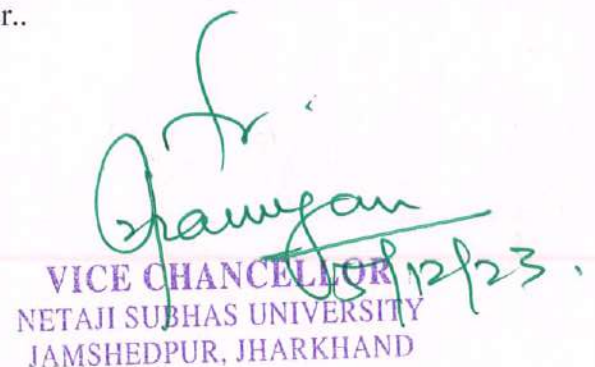 r..
VICE CHANCELLOR
/12/23.
NETAJI SUBHAS UNIVERSITY
JAMSHEDPUR, JHARKHAND